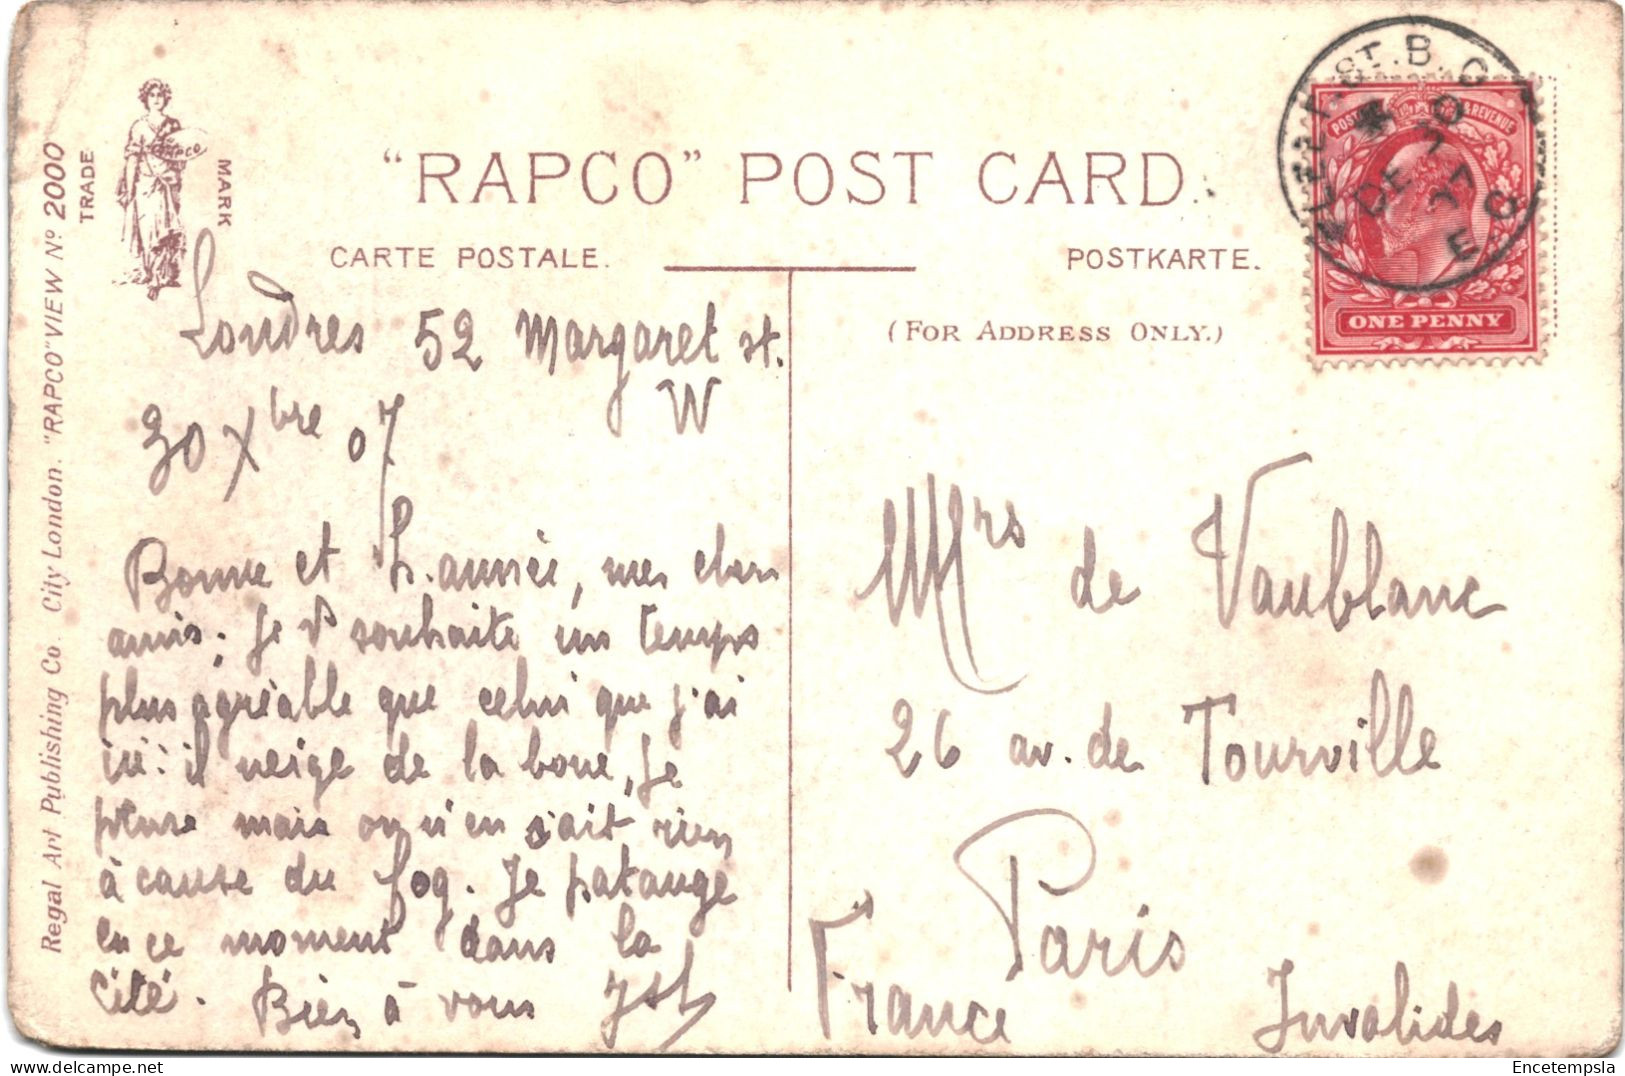 "RAPCO" POST CARD.
CARTE POSTALE.
POSTKARTE.
(FOR ADDRESS ONLY.)
TRADE
MARK
RAPCO
Regal Art Publishing Co. City London. "RAPCO" VIEW Nº 2000
ST. B.O.
DE 30
07
E.C.
POSTAGE & REVENUE
ONE PENNY
Londres 52 Margaret st.
W
30 Xbre 07
Bonne et h. année, mes chers
amis; Je v souhaite un temps
plus agréable que celui que j'ai
ici: il neige de la boue, Je
pleure mais on n'en sait rien
à cause du fog. Je patauge
en ce moment dans la
Cité. Bien à vous
Mrs de Vaublanc
26 av. de Tourville
Paris
France Invalides
Encetempsla